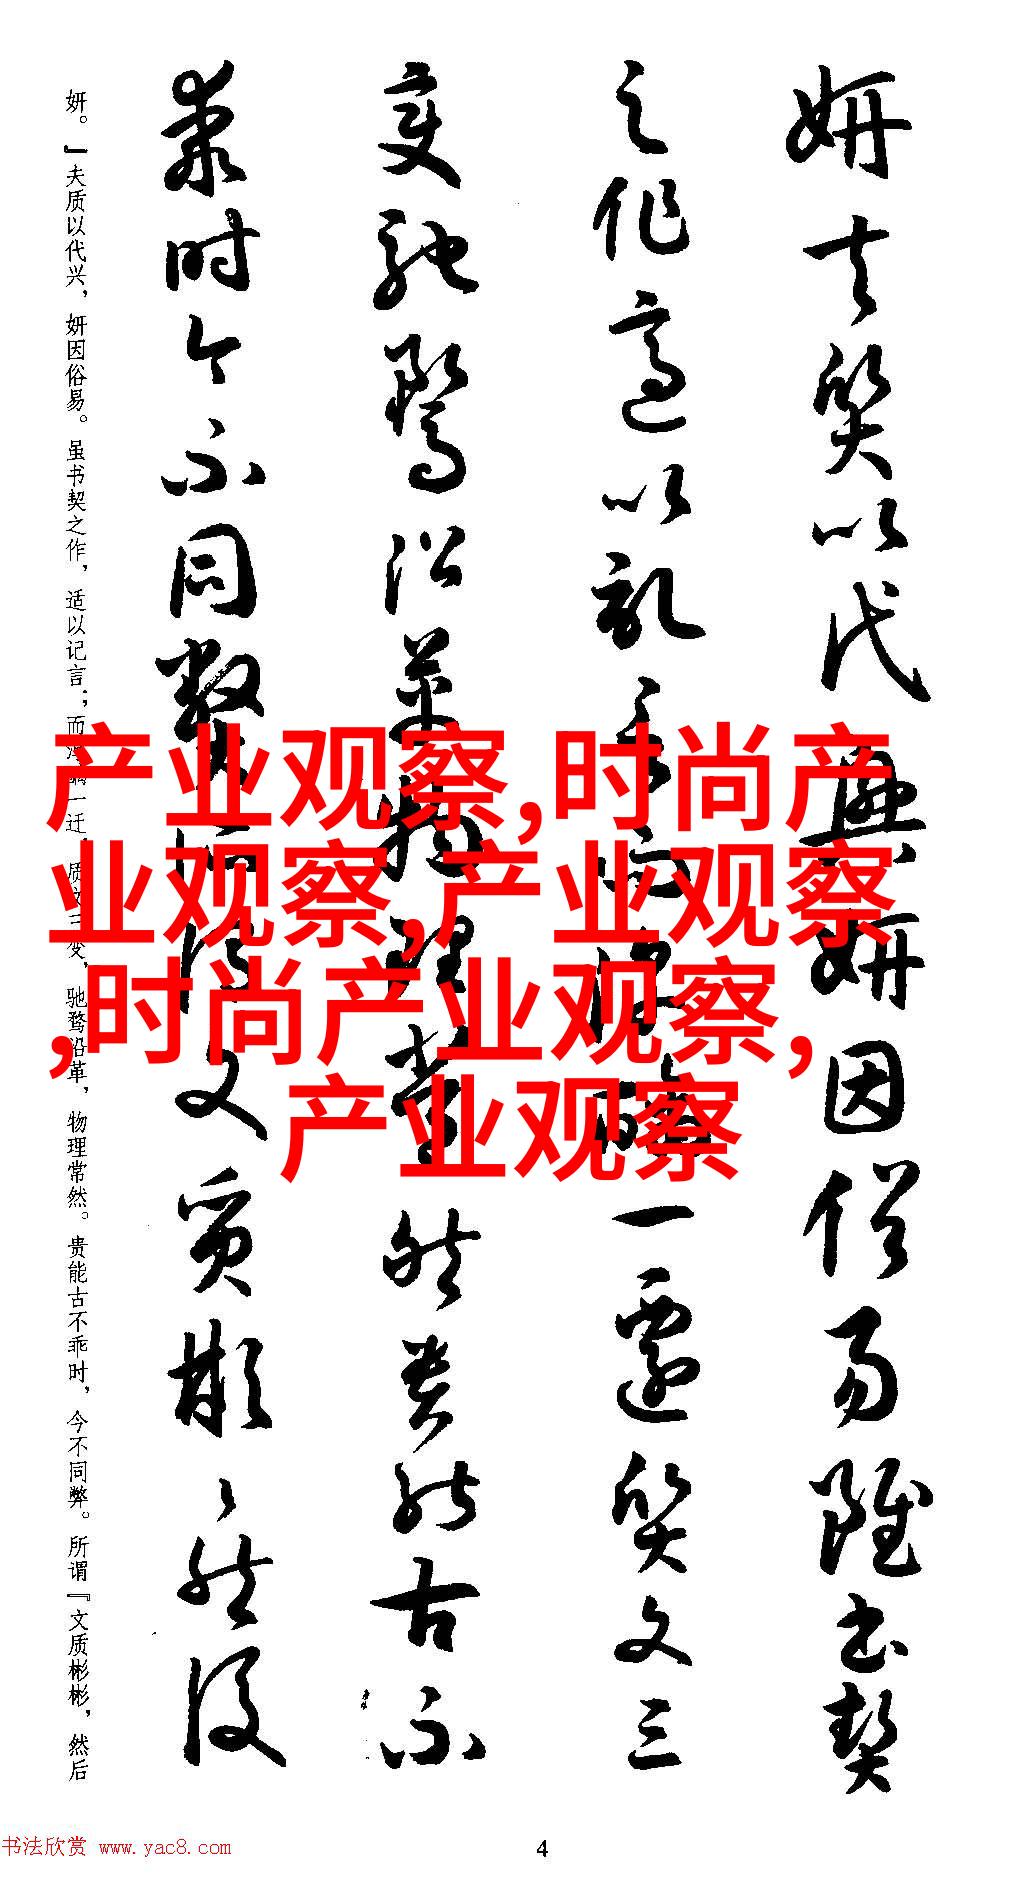 妍夫質以代興妍因俗易雖書契
之作適以記言而淳醨一遷質文三
變馳騖沿革物理常然貴能古不
乖時今不同弊所謂文質彬彬然後
妍。』夫质以代兴，妍因俗易。虽书契之作，适以记言；而淳醨一迁，质文三变，驰骛沿革，物理常然。贵能古不乖时，今不同弊。所谓『文质彬彬，然后
产业观察,时尚产
业观察,产业观察
,时尚产业观察,
产业观察
书法欣赏 www.yac8.com
4